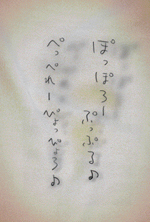 ぽっぽろー ぷっぷる♪
ぺっぺれー ぴょっぴょろ♪